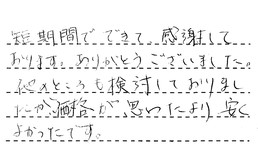 短期間でできて、感謝して
おります。ありがとうございました。
他のところも検討しておりまし
たが、価格が、思ったより安く
よかったです。